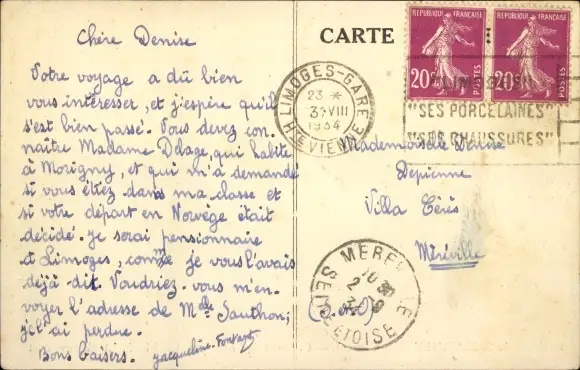 Chère Denise
Votre voyage a dû bien
vous intéresser, et j'espère qu'il
s'est bien passé. Vous devez con-
naître Madame Delage, qui habite
à Morigny, et qui m'a demandé
si vous étiez dans ma classe et
si votre départ en Norvège était
décidé. Je serai pensionnaire
à Limoges, comme je vous l'avais
déjà dit. Voudriez-vous m'en-
voyer l'adresse de Melle Sauthon;
je l'ai perdue.
Bons baisers. Jacqueline Fontayet
CARTE
REPUBLIQUE FRANÇAISE
20c
POSTES
REPUBLIQUE FRANÇAISE
20c
POSTES
LIMOGES-GARE
23 *
31 VIII
1934
Hte VIENNE
"SES PORCELAINES"
"SES CHAUSSURES"
Mademoiselle Denise
Depienne
Villa Cérès
Méréville
(S. et O.)
MEREVILLE
10 30
2 - 9
34
SEINE ET OISE